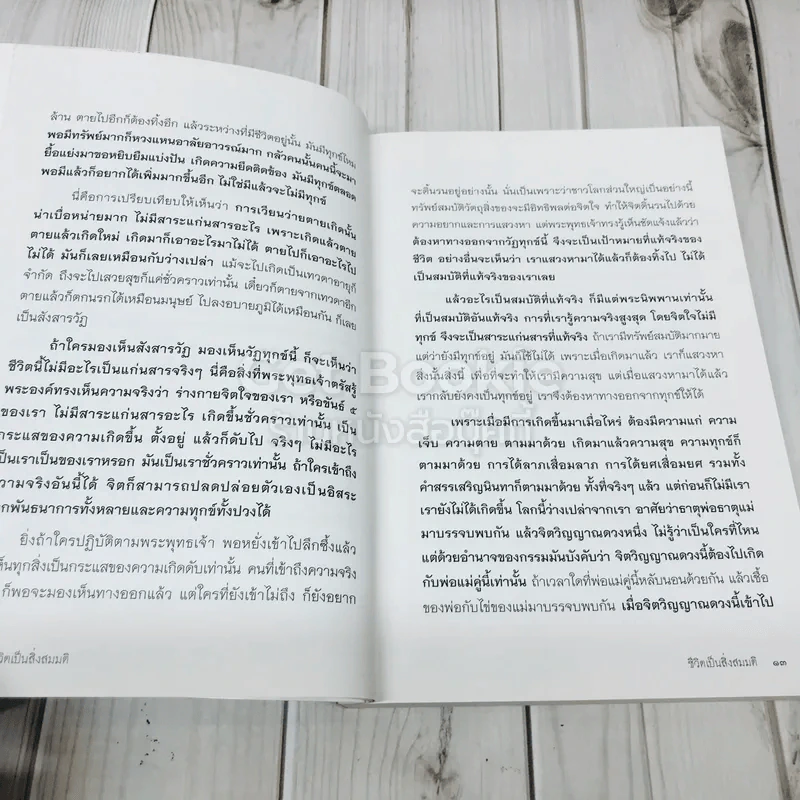 ล้าน ตายไปอีกก็ต้องทิ้งอีก แล้วระหว่างที่มีชีวิตอยู่นั้น มันมีทุกข์ไหม
พอมีทรัพย์มากก็หวงแหนอาลัยอาวรณ์มาก กลัวคนนั้นคนนี้จะมา
ยื้อแย่งมาขอหยิบยืมแบ่งปัน เกิดความยึดติดข้อง มันมีทุกข์ตลอด
พอมีแล้วก็อยากได้เพิ่มมากขึ้นอีก ไม่ใช่มีแล้วจะไม่มีทุกข์
นี่คือการเปรียบเทียบให้เห็นว่า การเวียนว่ายตายเกิดนั้น
น่าเบื่อหน่ายมาก ไม่มีสาระแก่นสารอะไร เพราะเกิดแล้วตาย
ตายแล้วเกิดใหม่ เกิดมาก็เอาอะไรมาไม่ได้ ตายไปก็เอาอะไรไป
ไม่ได้ มันก็เลยเหมือนกับว่างเปล่า แม้จะไปเกิดเป็นเทวดาอายุก็
จำกัด ถึงจะไปเสวยสุขก็แค่ชั่วคราวเท่านั้น เดี๋ยวก็ตายจากเทวดาอีก
ตายแล้วก็ตกนรกได้เหมือนมนุษย์ ไปลงอบายภูมิได้เหมือนกัน ก็เลย
เป็นสังสารวัฏ
ถ้าใครมองเห็นสังสารวัฏ มองเห็นวัฏทุกข์นี้ ก็จะเห็นว่า
ชีวิตนี้ไม่มีอะไรเป็นแก่นสารจริงๆ นี่คือสิ่งที่พระพุทธเจ้าตรัสรู้
พระองค์ทรงเห็นความจริงว่า ร่างกายจิตใจของเรา หรือขันธ์ ๕
ของเรา ไม่มีสาระแก่นสารอะไร เกิดขึ้นชั่วคราวเท่านั้น เป็น
กระแสของความเกิดขึ้น ตั้งอยู่ แล้วก็ดับไป จริงๆ ไม่มีอะไร
เป็นเราเป็นของเราหรอก มันเป็นเราชั่วคราวเท่านั้น ถ้าใครเข้าถึง
ความจริงอันนี้ได้ จิตก็สามารถปลดปล่อยตัวเองเป็นอิสระ
กพันธนาการทั้งหลายและความทุกข์ทั้งปวงได้
ยิ่งถ้าใครปฏิบัติตามพระพุทธเจ้า พอหยั่งเข้าไปลึกซึ้งแล้ว
ห็นทุกสิ่งเป็นกระแสของความเกิดดับเท่านั้น คนที่เข้าถึงความจริง
ก็พอจะมองเห็นทางออกแล้ว แต่ใครที่ยังเข้าไม่ถึง ก็ยังอยาก
วิตเป็นสิ่งสมมติ
จะดิ้นรนอยู่อย่างนั้น นั่นเป็นเพราะว่าชาวโลกส่วนใหญ่เป็นอย่างนี้
ทรัพย์สมบัติวัตถุสิ่งของจะมีอิทธิพลต่อจิตใจ ทำให้จิตดิ้นรนไปด้วย
ความอยากและการแสวงหา แต่พระพุทธเจ้าทรงรู้เห็นชัดแจ้งแล้วว่า
ต้องหาทางออกจากวัฏทุกข์นี้ จึงจะเป็นเป้าหมายที่แท้จริงของ
ชีวิต อย่างอื่นจะเห็นว่า เราแสวงหามาได้แล้วก็ต้องทิ้งไป ไม่ได้
เป็นสมบัติที่แท้จริงของเราเลย
แล้วอะไรเป็นสมบัติที่แท้จริง ก็มีแต่พระนิพพานเท่านั้น
ที่เป็นสมบัติอันแท้จริง การที่เรารู้ความจริงสูงสุด โดยจิตใจไม่มี
ทุกข์ จึงจะเป็นสาระแก่นสารที่แท้จริง ถ้าเรามีทรัพย์สมบัติมากมาย
แต่ว่ายังมีทุกข์อยู่ มันก็ใช้ไม่ได้ เพราะเมื่อเกิดมาแล้ว เราก็แสวงหา
สิ่งนั้นสิ่งนี้ เพื่อที่จะทำให้เรามีความสุข แต่เมื่อแสวงหามาได้แล้ว
เรากลับยังคงเป็นทุกข์อยู่ เราจึงต้องหาทางออกจากทุกข์ให้ได้
เพราะเมื่อมีการเกิดขึ้นมาเมื่อไหร่ ต้องมีความแก่ ความ
เจ็บ ความตาย ตามมาด้วย เกิดมาแล้วความสุข ความทุกข์ก็
ตามมาด้วย การได้ลาภเสื่อมลาภ การได้ยศเสื่อมยศ รวมทั้ง
คำสรรเสริญนินทาก็ตามมาด้วย ทั้งที่จริงๆ แล้ว แต่ก่อนก็ไม่มีเรา
เรายังไม่ได้เกิดขึ้น โลกนี้ว่างเปล่าจากเรา อาศัยว่าธาตุพ่อธาตุแม่
มาบรรจบพบกัน แล้วจิตวิญญาณดวงหนึ่ง ไม่รู้ว่าเป็นใครที่ไหน
แต่ด้วยอำนาจของกรรมมันบังคับว่า จิตวิญญาณดวงนี้ต้องไปเกิด
กับพ่อแม่คู่นี้เท่านั้น ถ้าเวลาใดที่พ่อแม่คู่นี้หลับนอนด้วยกัน แล้วเชื้อ
ของพ่อกับไข่ของแม่มาบรรจบพบกัน เมื่อจิตวิญญาณดวงนี้เข้าไป
ชีวิตเป็นสิ่งสมมติ ๑๓